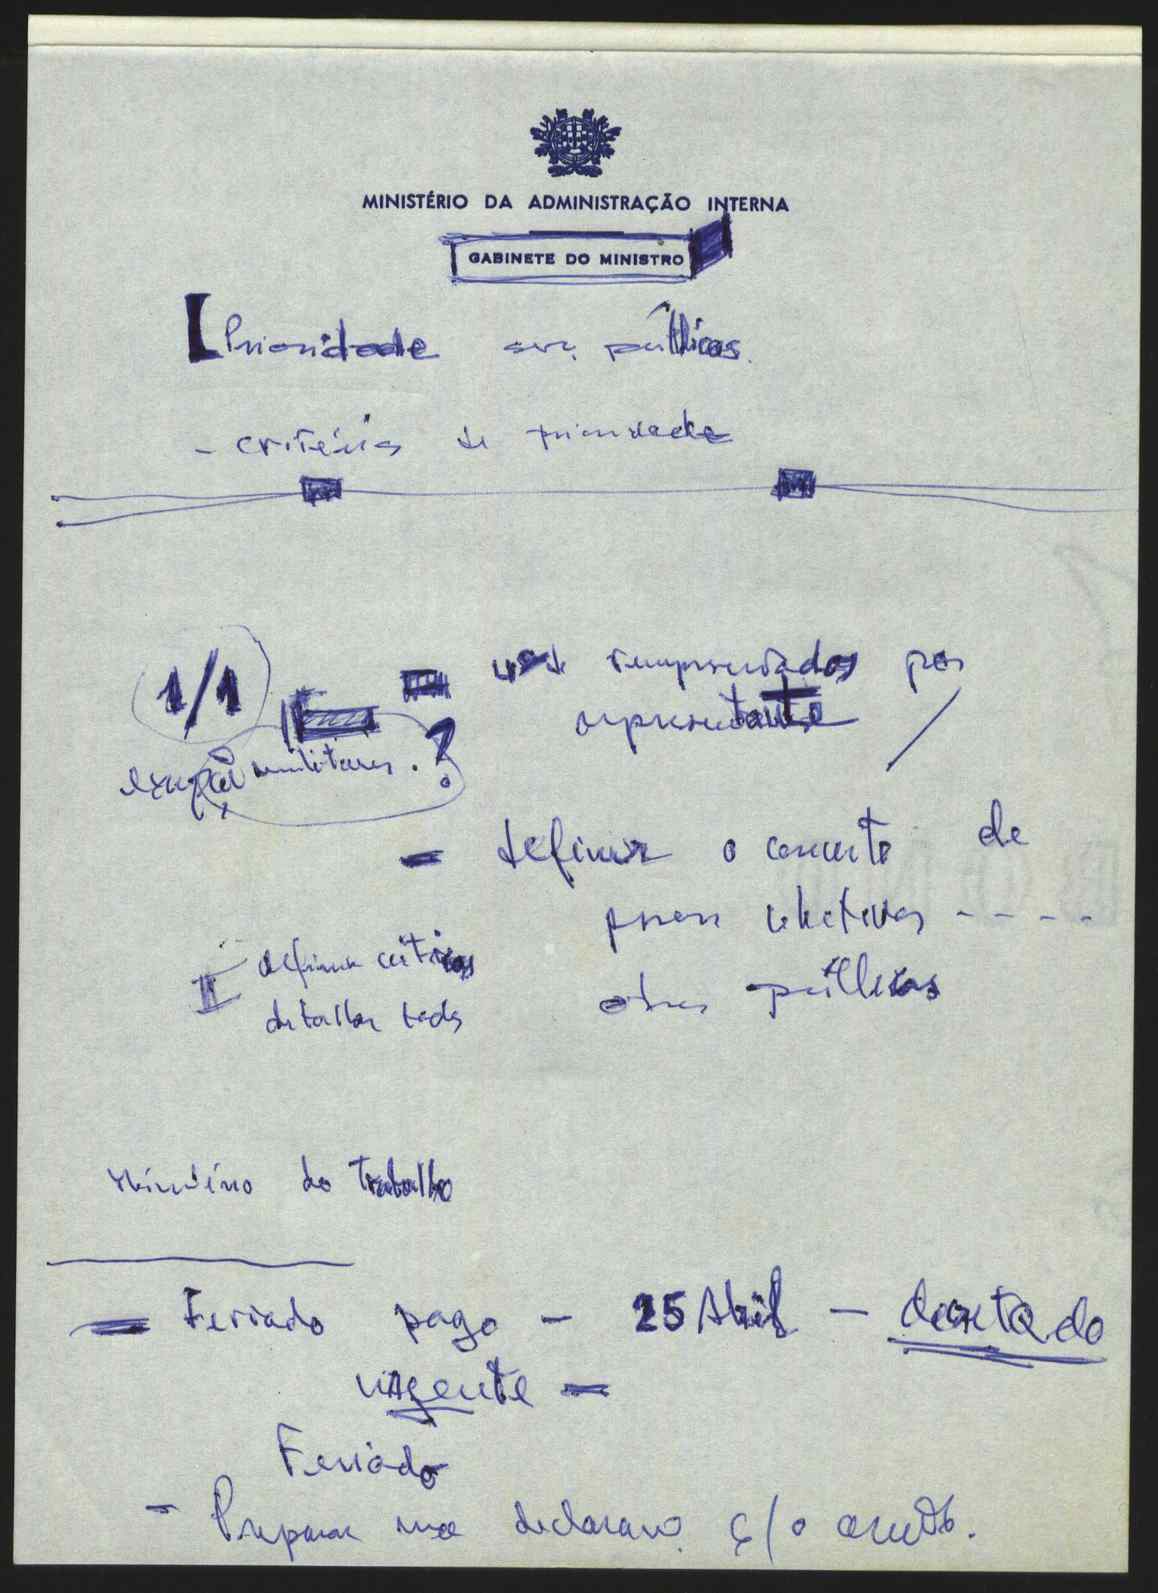 MINISTÉRIO DA ADMINISTRAÇÃO INTERNA
GABINETE DO MINISTRO
Prioridade serv. públicos.
- critérios de prioridade
1/1
representados por
representante
militares . ?
- definir o conceito de
obras públicas
II definir critérios
detalhar todos
Ministério do Trabalho
- Feriado pago - 25 Abril - decretado
urgente -
Feriado
- Preparar uma declaração s/ o assunto.